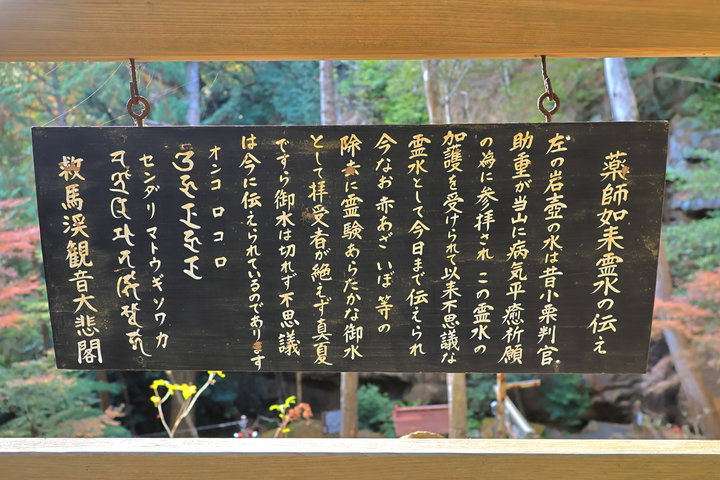 薬師如来霊水の伝え
左の岩壺の水は昔小栗判官
助重が当山に病気平癒祈願
の為に参拝され この霊水の
加護を受けられて以来不思議な
霊水として今日まで伝えられ
今なお 赤あざ いぼ 等の
除去に霊験あらたかな御水
として拝受者が絶えず真夏
ですら御水は切れず不思議
は今に伝えられているのであります
オンコロコロ
センダリマトウギソワカ
救馬渓観音大悲閣